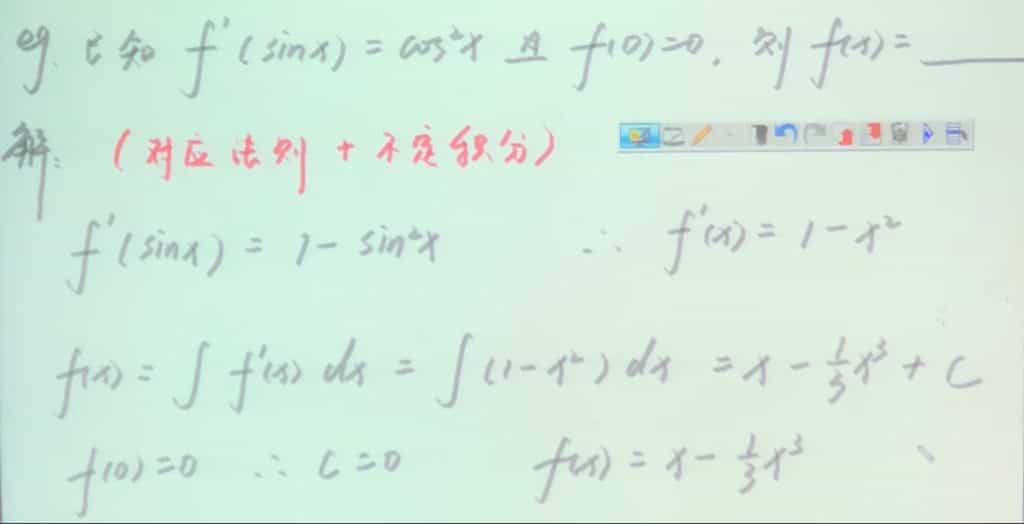 eg. 已知 f'(sinx) = cos²x 且 f(0)=0, 则 f(x) = ____
解: (对应法则 + 不定积分)
f'(sinx) = 1 - sin²x ∴ f'(x) = 1 - x²
f(x) = ∫ f'(x) dx = ∫ (1 - x²) dx = x - 1/3 x³ + C
f(0)=0 ∴ C=0 f(x) = x - 1/3 x³